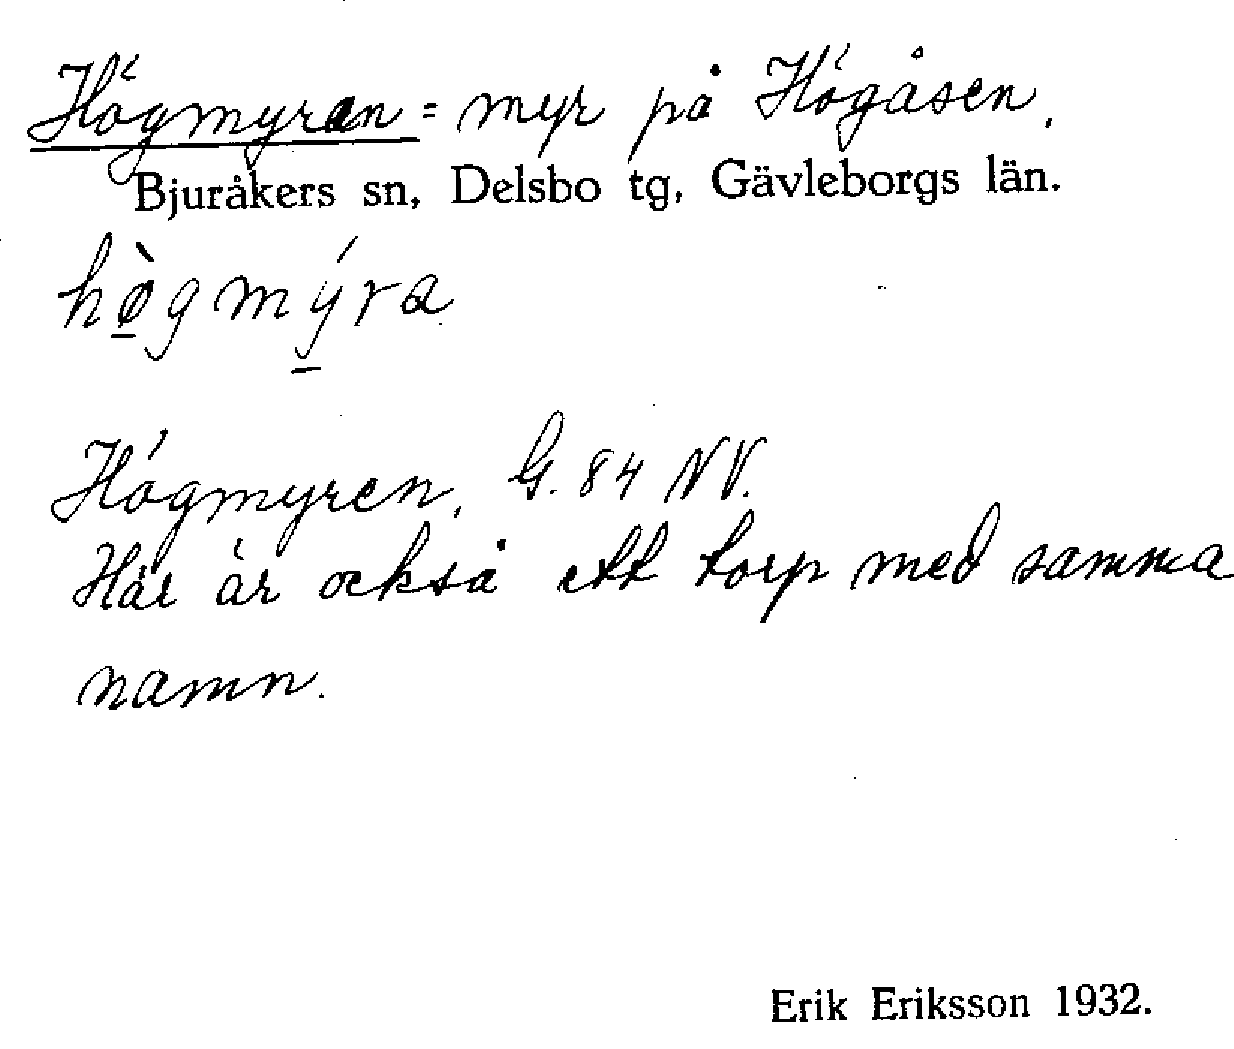 Högmyran = myr på Högåsen.
Bjuråkers sn, Delsbo tg, Gävleborgs län.
hø̱̀gmý̱ra
Högmyren, G. 84 NV.
Här är också ett torp med samma
namn.
Erik Eriksson 1932.